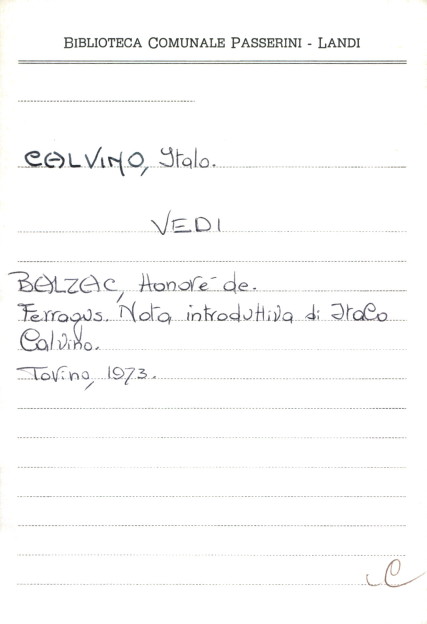 BIBLIOTECA COMUNALE PASSERINI - LANDI
CALVINO, Italo.
VEDI
BALZAC, Honoré de.
Ferragus. Nota introduttiva di Italo
Calvino.
Torino, 1973.
C